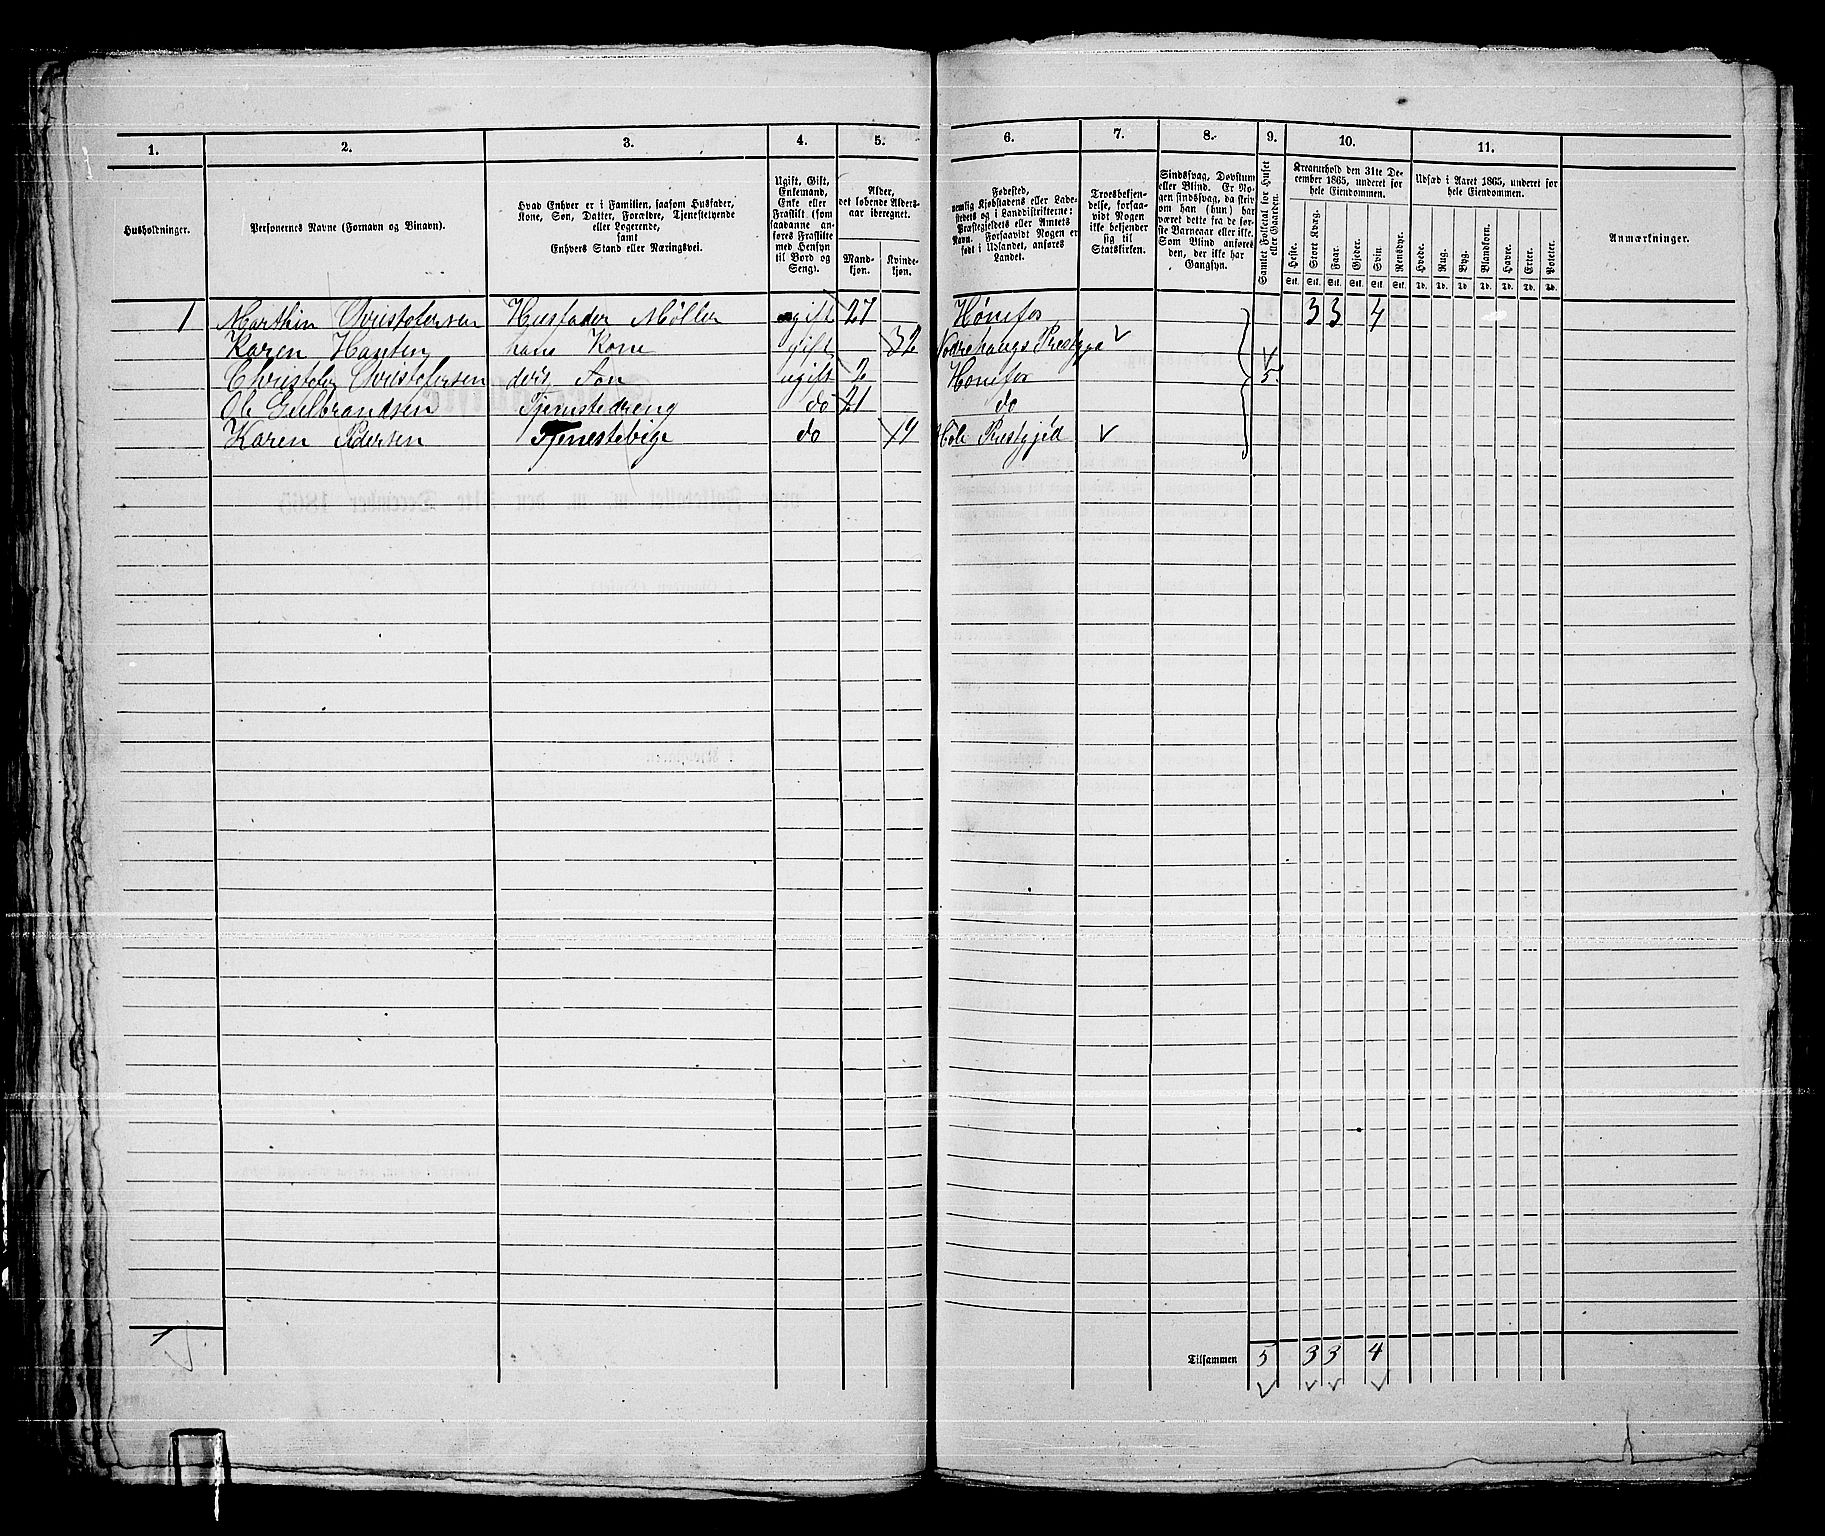 1. 2. 3. 4. 5. 6. 7. 8. 9. 10. 11.
Husholdninger.
Personernes Navne (Fornavn og Binavn).
Hvad Enhver er i Familien, saasom Husfader,
Kone, Søn, Datter, Forældre, Tjenestetyende
eller Logerende,
samt
Enhvers Stand eller Næringsvei.
Ugift, Gift,
Enkemand,
Enke eller
Fraskilt (som
saadanne an-
føres Fraskilte
med Hensyn
til Bord og
Seng).
Alder,
det løbende Alders-
aar iberegnet.
Mand-
kjøn.
Kvinde-
kjøn.
Fødested,
nemlig Kjøbstadens eller Lade-
stedets og i Landdistrikterne:
Præstegjeldets eller Annexets
Navn. Forsaavidt Nogen er
født i Udlandet, anføres
Landet.
Troesbekjen-
delse, forsaa-
vidt Nogen
ikke bekjender
sig til
Statskirken.
Sindssvag, Døvstum
eller Blind. Er No-
gen sindssvag, da skriv
om han (hun) har
været dette fra de før-
ste Barneaar eller ikke.
Som Blind anføres
den, der ikke har
Gangsyn.
Samlet Folketal for Huset
eller Gaarden.
Kreaturhold den 31te De-
cember 1865, underet for
hele Eiendommen.
Heste. Stort Kvæg. Faar. Gjeder. Svin. Rensdyr.
Stk. Stk. Stk. Stk. Stk. Stk.
Udsæd i Aaret 1865, underet for
hele Eiendommen.
Hvede. Rug. Byg. Blandkorn. Havre. Erter. Poteter.
Td. Td. Td. Td. Td. Td. Td.
Anmærkninger.
1 Marthin Christofersen Husfader Møller gift 27 Hønefos 3 3 4
Karen Hansen hans Kone gift 32 Norderhougs Prestgjd
Christofer Christofersen deres Søn ugift 2 Hønefos 5
Ole Gulbrandsen Tjenestedreng do 21 do
Karen Pedersen Tjenestepige do 19 Hole Prestgjeld
1
Tilsammen 5 3 3 4